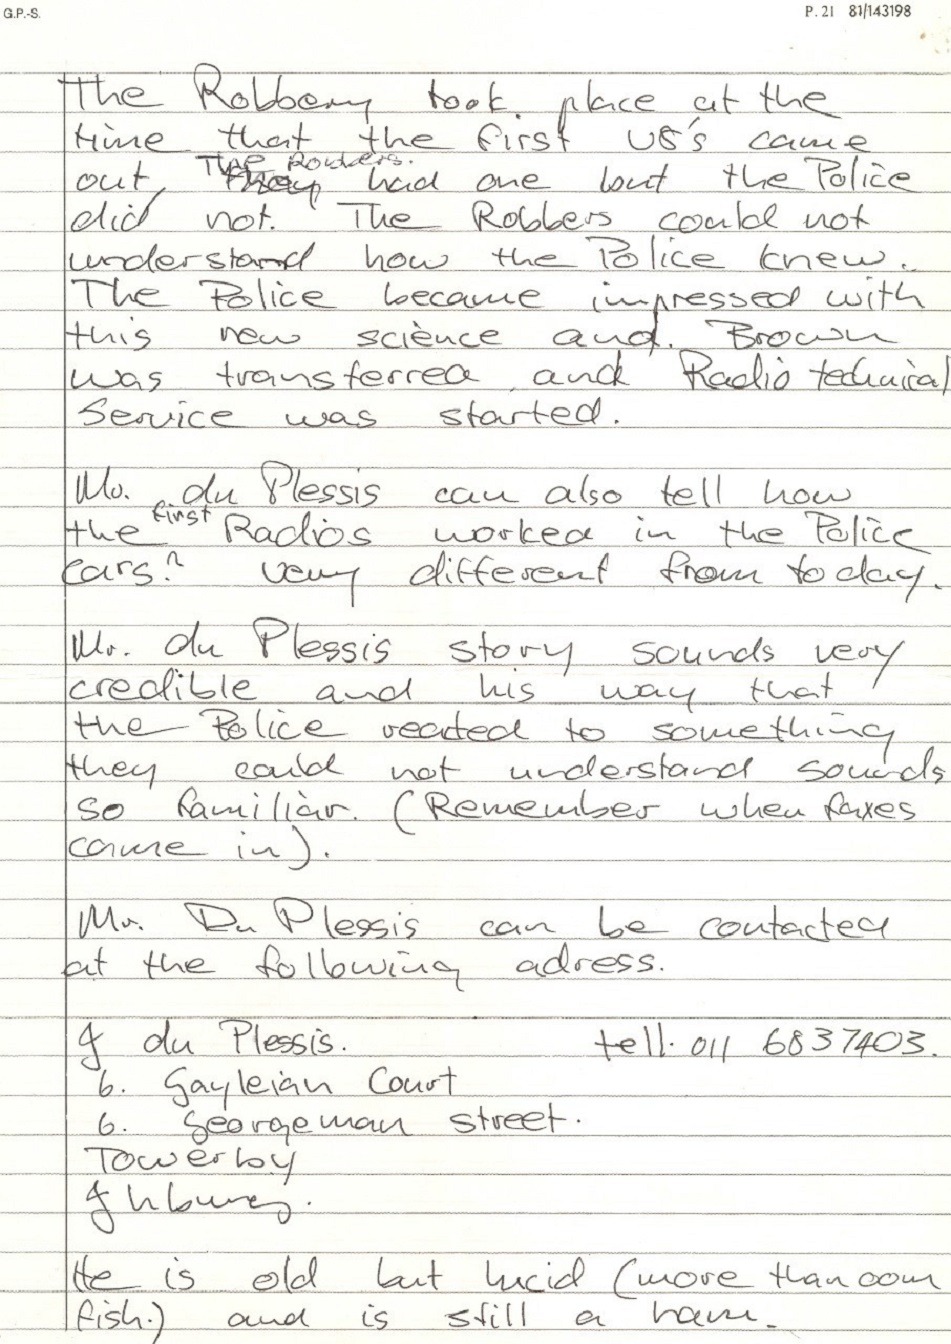 G.P.-S. P. 21 81/143198
The Robbery took place at the
time that the first V8's came
The Robbers.
out, they had one but the Police
did not. The Robbers could not
understand how the Police knew.
The Police became impressed with
this new science and. Brown
was transferred and Radio technical
Service was started.
Mr. du Plessis can also tell how
the first Radios worked in the Police
cars? very different from today.
Mr. du Plessis story sounds very
credible and his way that
the Police reacted to something
they could not understand sounds
so familiar. (Remember when faxes
came in).
Mr. Du Plessis can be contacted
at the following adress.
J du Plessis. tell. 011 6837403.
6. Gayleian Court
6. Georgeman street.
Towerby
Jhburg.
He is old but lucid (more than
fish.) and is still a ham.